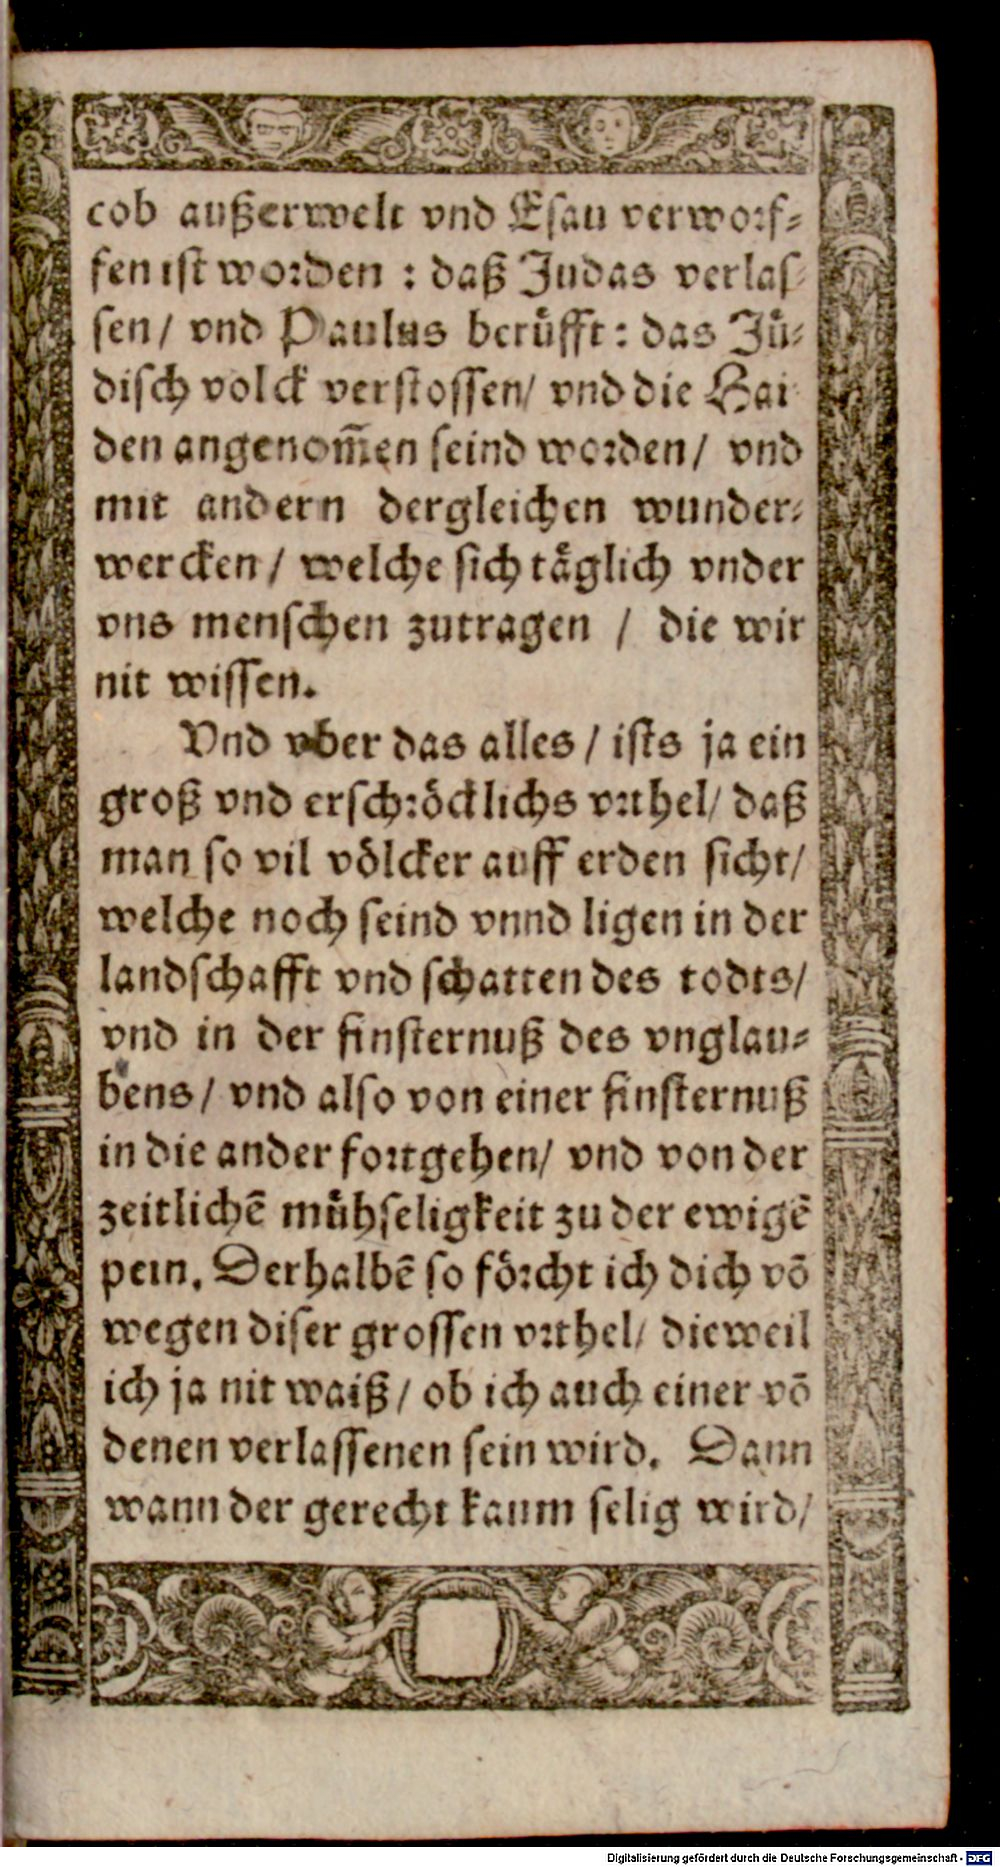 cob außerwelt vnd Esau verworf-
fen ist worden : daß Judas verlas-
sen/ vnd Paulus berüfft: das Jü-
disch volck verstossen/ vnd die Hai
den angenom̃en seind worden/ vnd
mit andern dergleichen wunder-
wercken / welche sich täglich vnder
vns menschen zutragen / die wir
nit wissen.
Vnd vber das alles / ists ja ein
groß vnd erschröcklichs vrthel/ daß
man so vil völcker auff erden sicht/
welche noch seind vnnd ligen in der
landschafft vnd schatten des todts/
vnd in der finsternuß des vnglau-
bens/ vnd also von einer finsternuß
in die ander fortgehen/ vnd von der
zeitlichẽ mühseligkeit zu der ewigẽ
pein. Derhalbẽ so förcht ich dich võ
wegen diser grossen vrthel/ dieweil
ich ja nit waiß/ ob ich auch einer võ
denen verlassenen sein wird. Dann
wann der gerecht kaum selig wird/
Digitalisierung gefördert durch die Deutsche Forschungsgemeinschaft - DFG